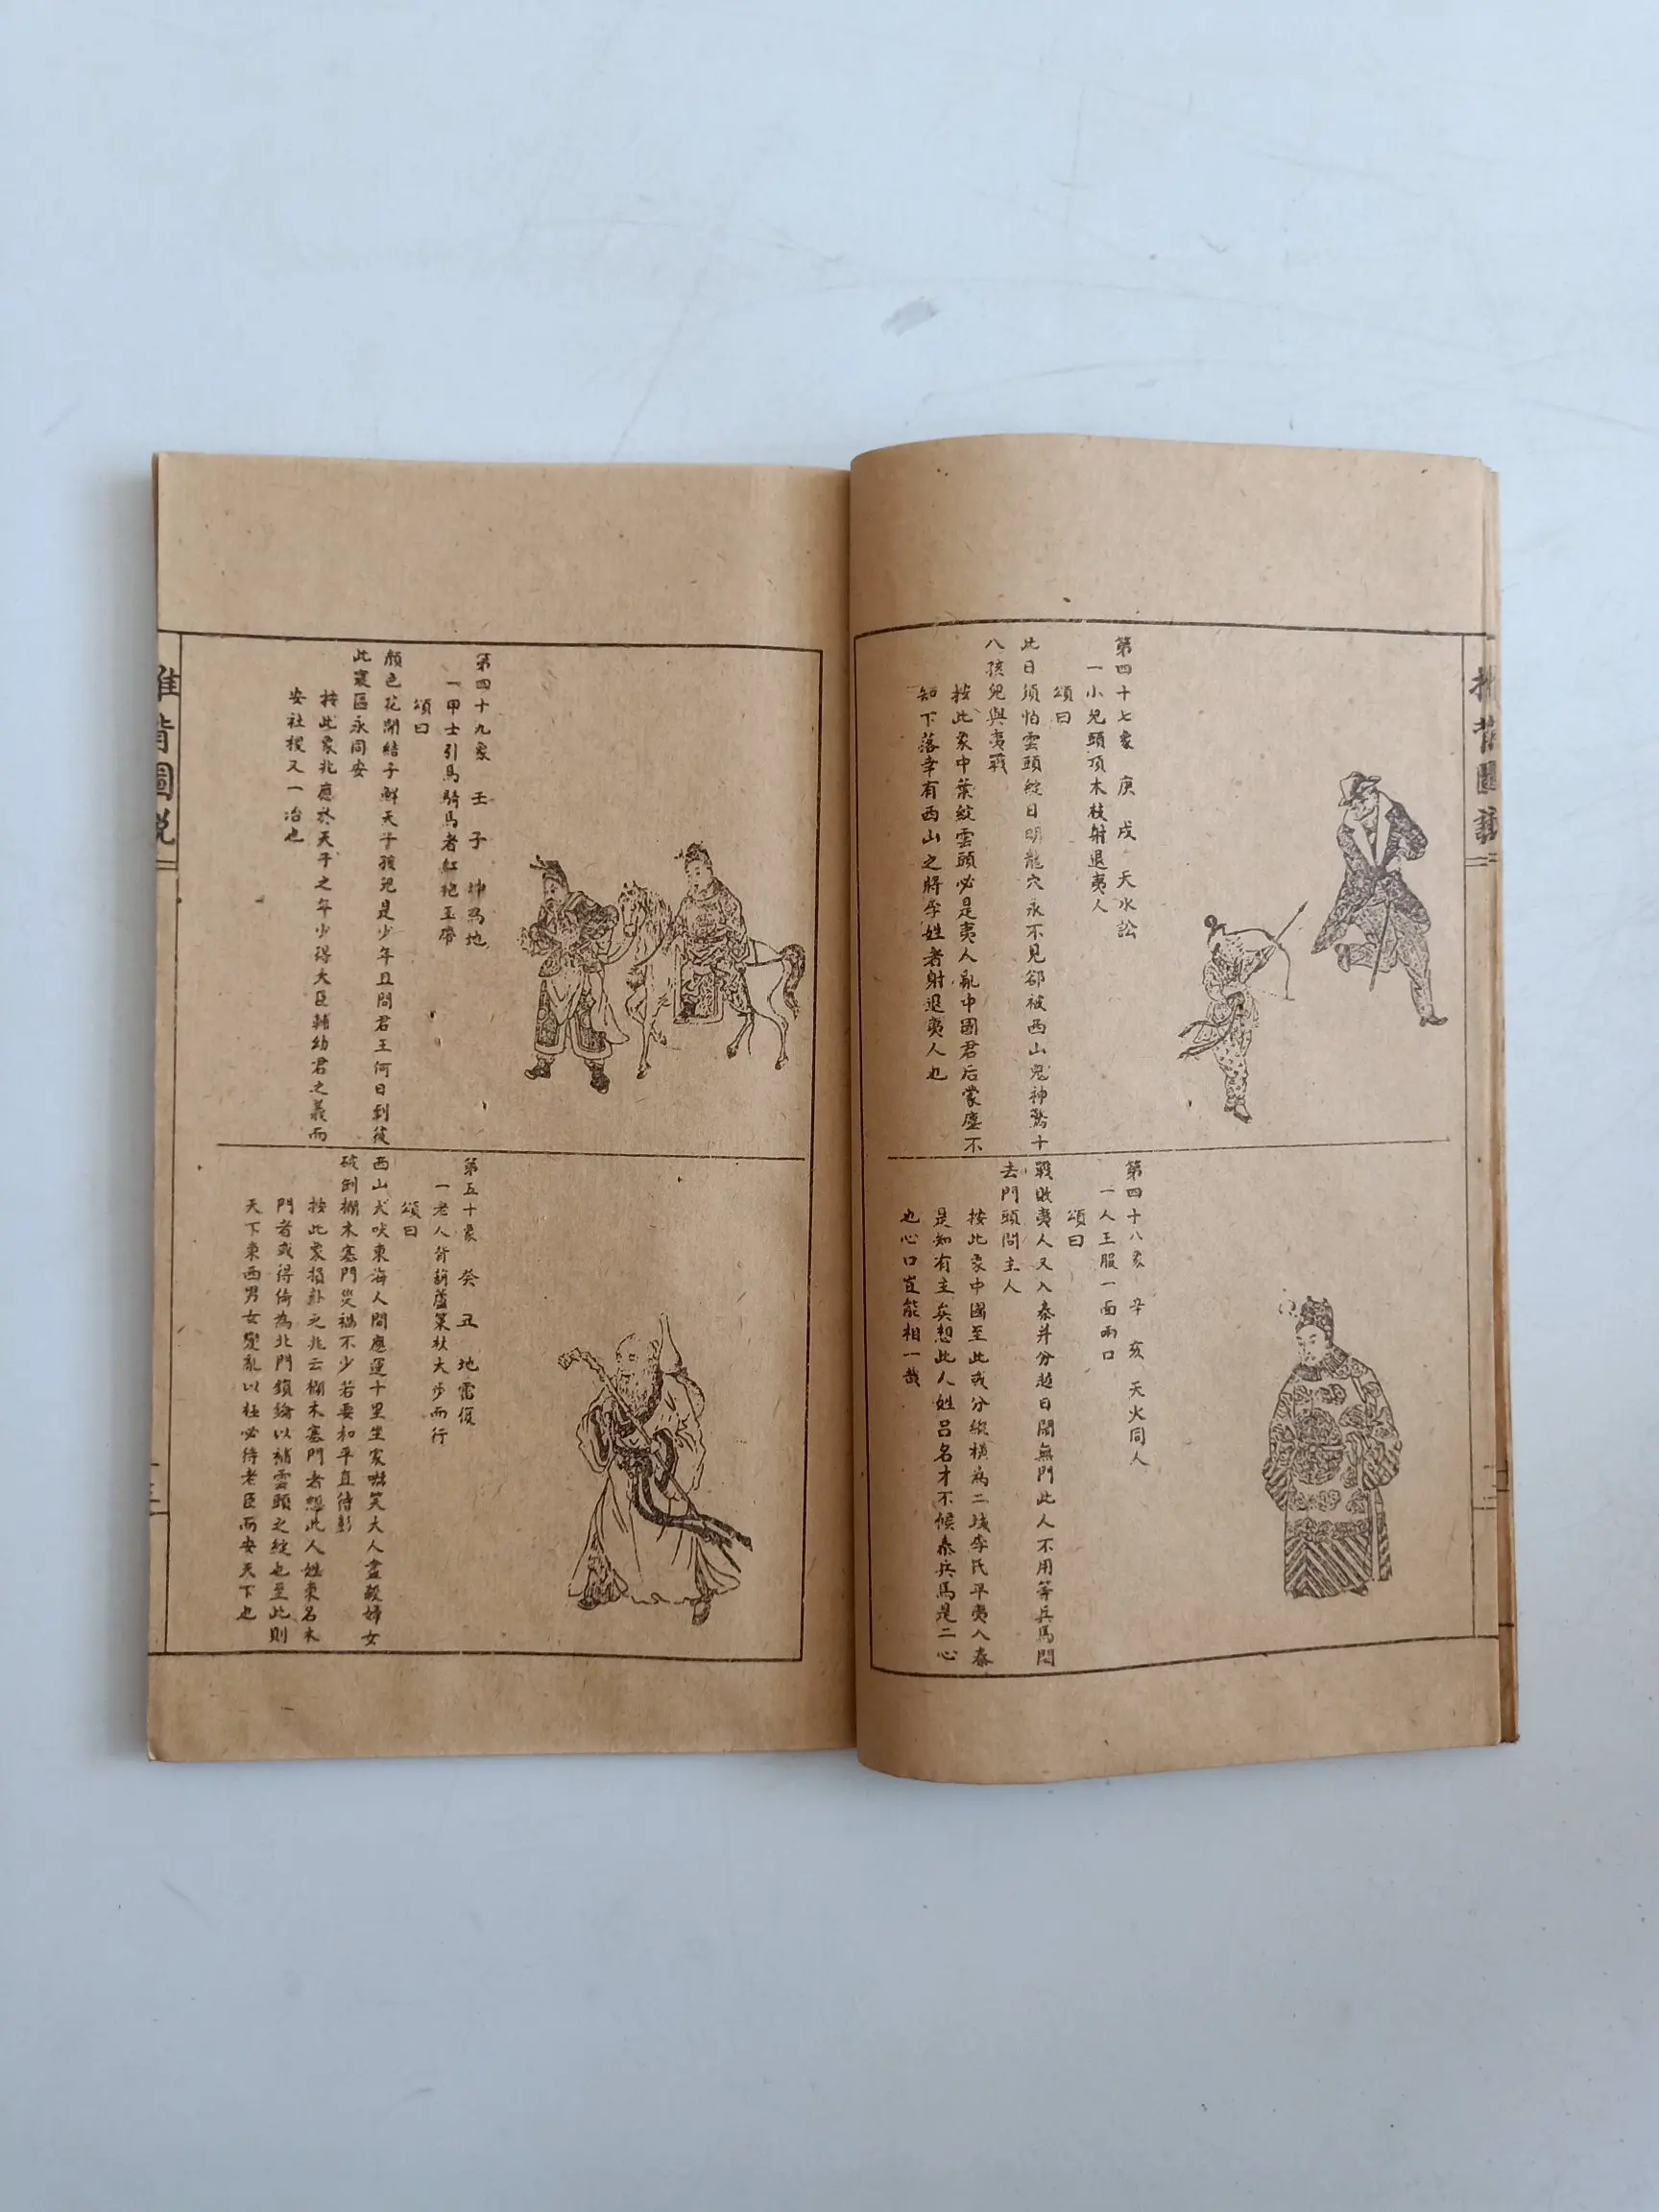 推背圖說
第四十七象 庚戌 天水訟
一小兒頭頂木枝射退夷人
頌曰
此日須怕雲頭綻日明龍穴永不見卻被西山鬼神驚十
八孩兒與夷戰
按此象中葉綻雲頭必是夷人亂中國君后蒙塵不
知下落幸有西山之將李姓者射退夷人也
第四十八象 辛亥 天火同人
一人王服一面兩口
頌曰
戰敗夷人又入秦并分越日闊無門此人不用等兵馬問
去門頭問主人
按此象中國至此或分縱橫為二域李氏平夷入秦
是知有主矣想此人姓呂名才不候秦兵馬是二心
也心口豈能相一哉
第四十九象 壬子 坤為地
一甲士引馬騎馬者紅袍玉帶
頌曰
顏色花開結子鮮天子孩兒是少年且問君王何日到從
此寰區永同安
按此象兆應於天子之年少得大臣輔幼君之義而
安社稷又一治也
第五十象 癸丑 地雷復
一老人背葫蘆策杖大步而行
頌曰
西山犬吠東海人間應運十里坐家啼笑大人盡殺婦女
破倒棚木塞門災禍不少若要和平直待彭
按此象損卦之兆云棚木塞門者想此人姓東名木
門者或得倚為北門鎖鑰以補雲頭之綻也至此則
天下東西男女變亂以極必待老臣而安天下也
推背圖說